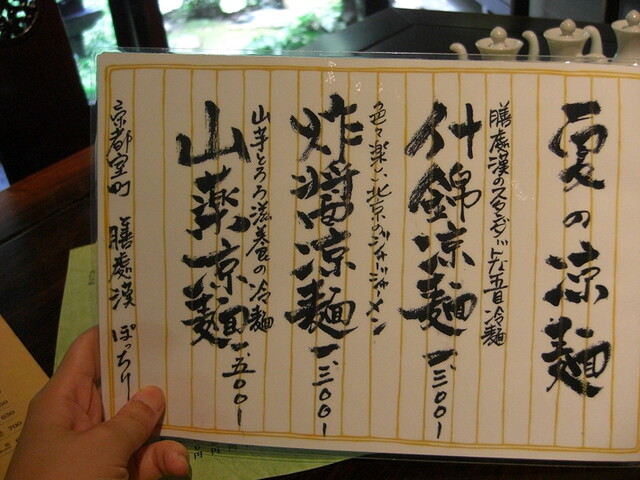 夏の涼麺
膳處漢のスタンダードな五目冷麺
什錦涼麺 一、三〇〇一
色々楽しい北京のジャージャーメン
炸醤涼麺 一、三〇〇一
山芋とろろ滋養の冷麺
山薬涼麺 一、五〇〇一
京都室町 膳處漢 ぽっちり